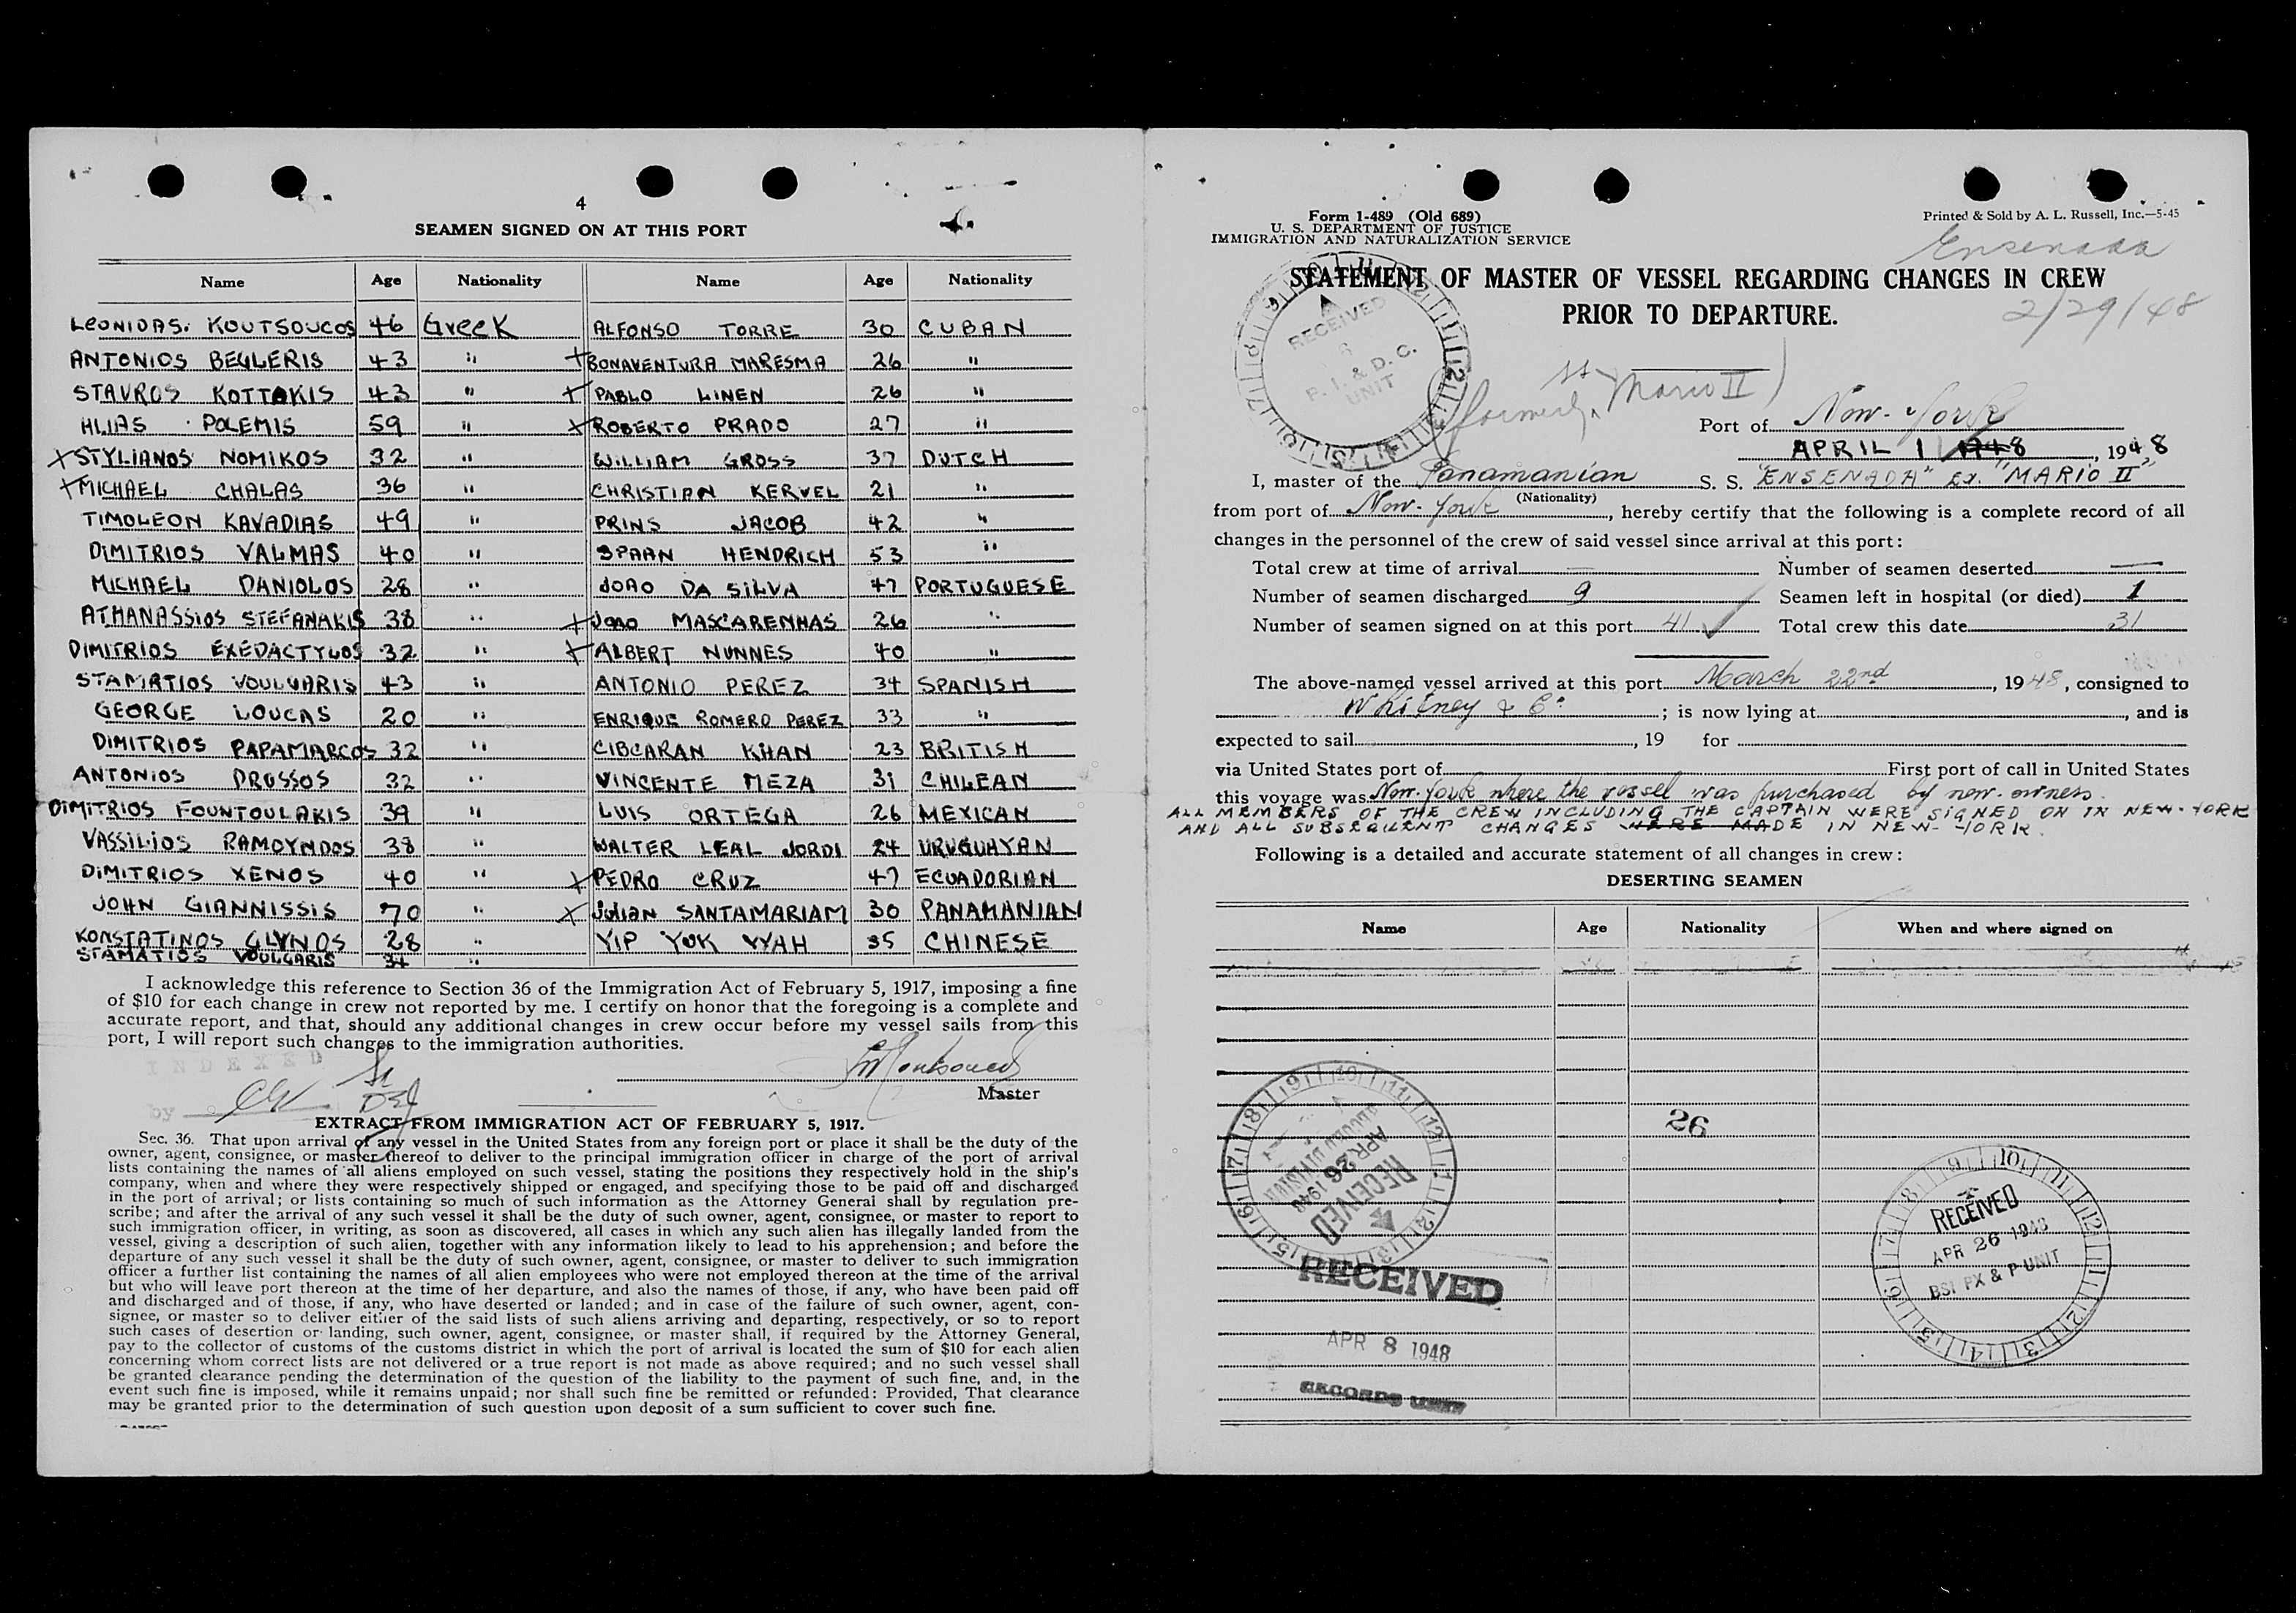 4
SEAMEN SIGNED ON AT THIS PORT
Name Age Nationality Name Age Nationality
LEONIDAS. KOUTSOUCOS 46 Greek ALFONSO TORRE 30 CUBAN
ANTONIOS BEGLERIS 43 " + BONAVENTURA MARESMA 26 "
STAVROS KOTTAKIS 43 " + PABLO LINEN 26 "
HLIAS POLEMIS 59 " x ROBERTO PRADO 27 "
x STYLIANOS NOMIKOS 32 " WILLIAM GROSS 37 DUTCH
+ MICHAEL CHALAS 36 " CHRISTIAN KERVEL 21 "
TIMOLEON KAVADIAS 49 " PRINS JACOB 42 "
DIMITRIOS VALMAS 40 " SPAAN HENDRICH 53 "
MICHAEL DANIOLOS 28 " JOAO DA SILVA 47 PORTUGUESE
ATHANASSIOS STEFANAKIS 38 " + JOAO MASCARENHAS 26 "
DIMITRIOS EXEDACTYLOS 32 " + ALBERT NUNNES 40 "
STAMATIOS VOULGARIS 43 " ANTONIO PEREZ 34 SPANISH
GEORGE LOUCAS 20 " ENRIQUE ROMERO PEREZ 33 "
DIMITRIOS PAPAMARCOS 32 " CIBCARAN KHAN 23 BRITISH
ANTONIOS DROSSOS 32 " VINCENTE MEZA 31 CHILEAN
DIMITRIOS FOUNTOULAKIS 39 " LUIS ORTEGA 26 MEXICAN
VASSILIOS RAMOYNDOS 38 " WALTER LEAL JORDI 24 URUGUAYAN
DIMITRIOS XENOS 40 " x PEDRO CRUZ 47 ECUADORIAN
JOHN GIANNISSIS 70 " x JULIAN SANTAMARIAM 30 PANAMANIAN
KONSTATINOS GLYNOS 28 " YIP YUK WAH 35 CHINESE
STAMATIOS VOULGARIS 34 "
I acknowledge this reference to Section 36 of the Immigration Act of February 5, 1917, imposing a fine
of $10 for each change in crew not reported by me. I certify on honor that the foregoing is a complete and
accurate report, and that, should any additional changes in crew occur before my vessel sails from this
port, I will report such changes to the immigration authorities.
INDEXED
by
Master
EXTRACT FROM IMMIGRATION ACT OF FEBRUARY 5, 1917.
Sec. 36. That upon arrival of any vessel in the United States from any foreign port or place it shall be the duty of the
owner, agent, consignee, or master thereof to deliver to the principal immigration officer in charge of the port of arrival
lists containing the names of all aliens employed on such vessel, stating the positions they respectively hold in the ship's
company, when and where they were respectively shipped or engaged, and specifying those to be paid off and discharged
in the port of arrival; or lists containing so much of such information as the Attorney General shall by regulation pre-
scribe; and after the arrival of any such vessel it shall be the duty of such owner, agent, consignee, or master to report to
such immigration officer, in writing, as soon as discovered, all cases in which any such alien has illegally landed from the
vessel, giving a description of such alien, together with any information likely to lead to his apprehension; and before the
departure of any such vessel it shall be the duty of such owner, agent, consignee, or master to deliver to such immigration
officer a further list containing the names of all alien employees who were not employed thereon at the time of the arrival
but who will leave port thereon at the time of her departure, and also the names of those, if any, who have been paid off
and discharged and of those, if any, who have deserted or landed; and in case of the failure of such owner, agent, con-
signee, or master so to deliver either of the said lists of such aliens arriving and departing, respectively, or so to report
such cases of desertion or landing, such owner, agent, consignee, or master shall, if required by the Attorney General,
pay to the collector of customs of the customs district in which the port of arrival is located the sum of $10 for each alien
concerning whom correct lists are not delivered or a true report is not made as above required; and no such vessel shall
be granted clearance pending the determination of the question of the liability to the payment of such fine, and, in the
event such fine is imposed, while it remains unpaid; nor shall such fine be remitted or refunded: Provided, That clearance
may be granted prior to the determination of such question upon deposit of a sum sufficient to cover such fine.
Form 1-489 (Old 689)
U. S. DEPARTMENT OF JUSTICE
IMMIGRATION AND NATURALIZATION SERVICE
Printed & Sold by A. L. Russell, Inc.—5-45
Ensenada
STATEMENT OF MASTER OF VESSEL REGARDING CHANGES IN CREW
PRIOR TO DEPARTURE.
2/29/48
RECEIVED
P. I. & D. C.
UNIT
formerly SS Mario II)
Port of New-York
APRIL 1 1948, 1948
I, master of the Panamanian S. S. "ENSENADA" Ex. "MARIO II"
(Nationality)
from port of New-York, hereby certify that the following is a complete record of all
changes in the personnel of the crew of said vessel since arrival at this port:
Total crew at time of arrival — Number of seamen deserted —
Number of seamen discharged 9 Seamen left in hospital (or died) 1
Number of seamen signed on at this port 41 ✓ Total crew this date 31
The above-named vessel arrived at this port March 22nd, 1948, consigned to
Whitney & Co.; is now lying at , and is
expected to sail , 19 for
via United States port of First port of call in United States
this voyage was New-York where the vessel was purchased by new owners.
ALL MEMBERS OF THE CREW INCLUDING THE CAPTAIN WERE SIGNED ON IN NEW-YORK
AND ALL SUBSEQUENT CHANGES WERE MADE IN NEW-YORK.
Following is a detailed and accurate statement of all changes in crew:
DESERTING SEAMEN
Name Age Nationality When and where signed on
26
RECEIVED
APR 26 1948
RECEIVED
APR 8 1948
RECORDS
RECEIVED
APR 26 1948
BSI PX & P UNIT